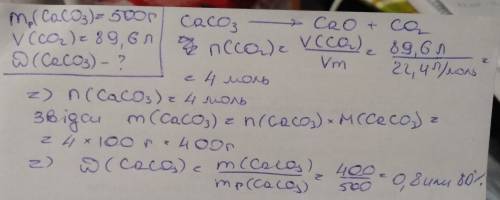 mр(CaCO3)=500г
V(CO2)=89,6л
ω(CaCO3)-?
CaCO3 → CaO + CO2
n(CO2)= V(CO2)/Vm = 89,6л/22,4л/моль =
= 4 моль
=) n(CaCO3)=4 моль
Звідси m(CaCO3)=n(CaCO3)×M(CaCO3)=
= 4 × 100 г = 400г
=) ω(CaCO3)= m(CaCO3)/mр(CaCO3) = 400/500 = 0,8 или 80%